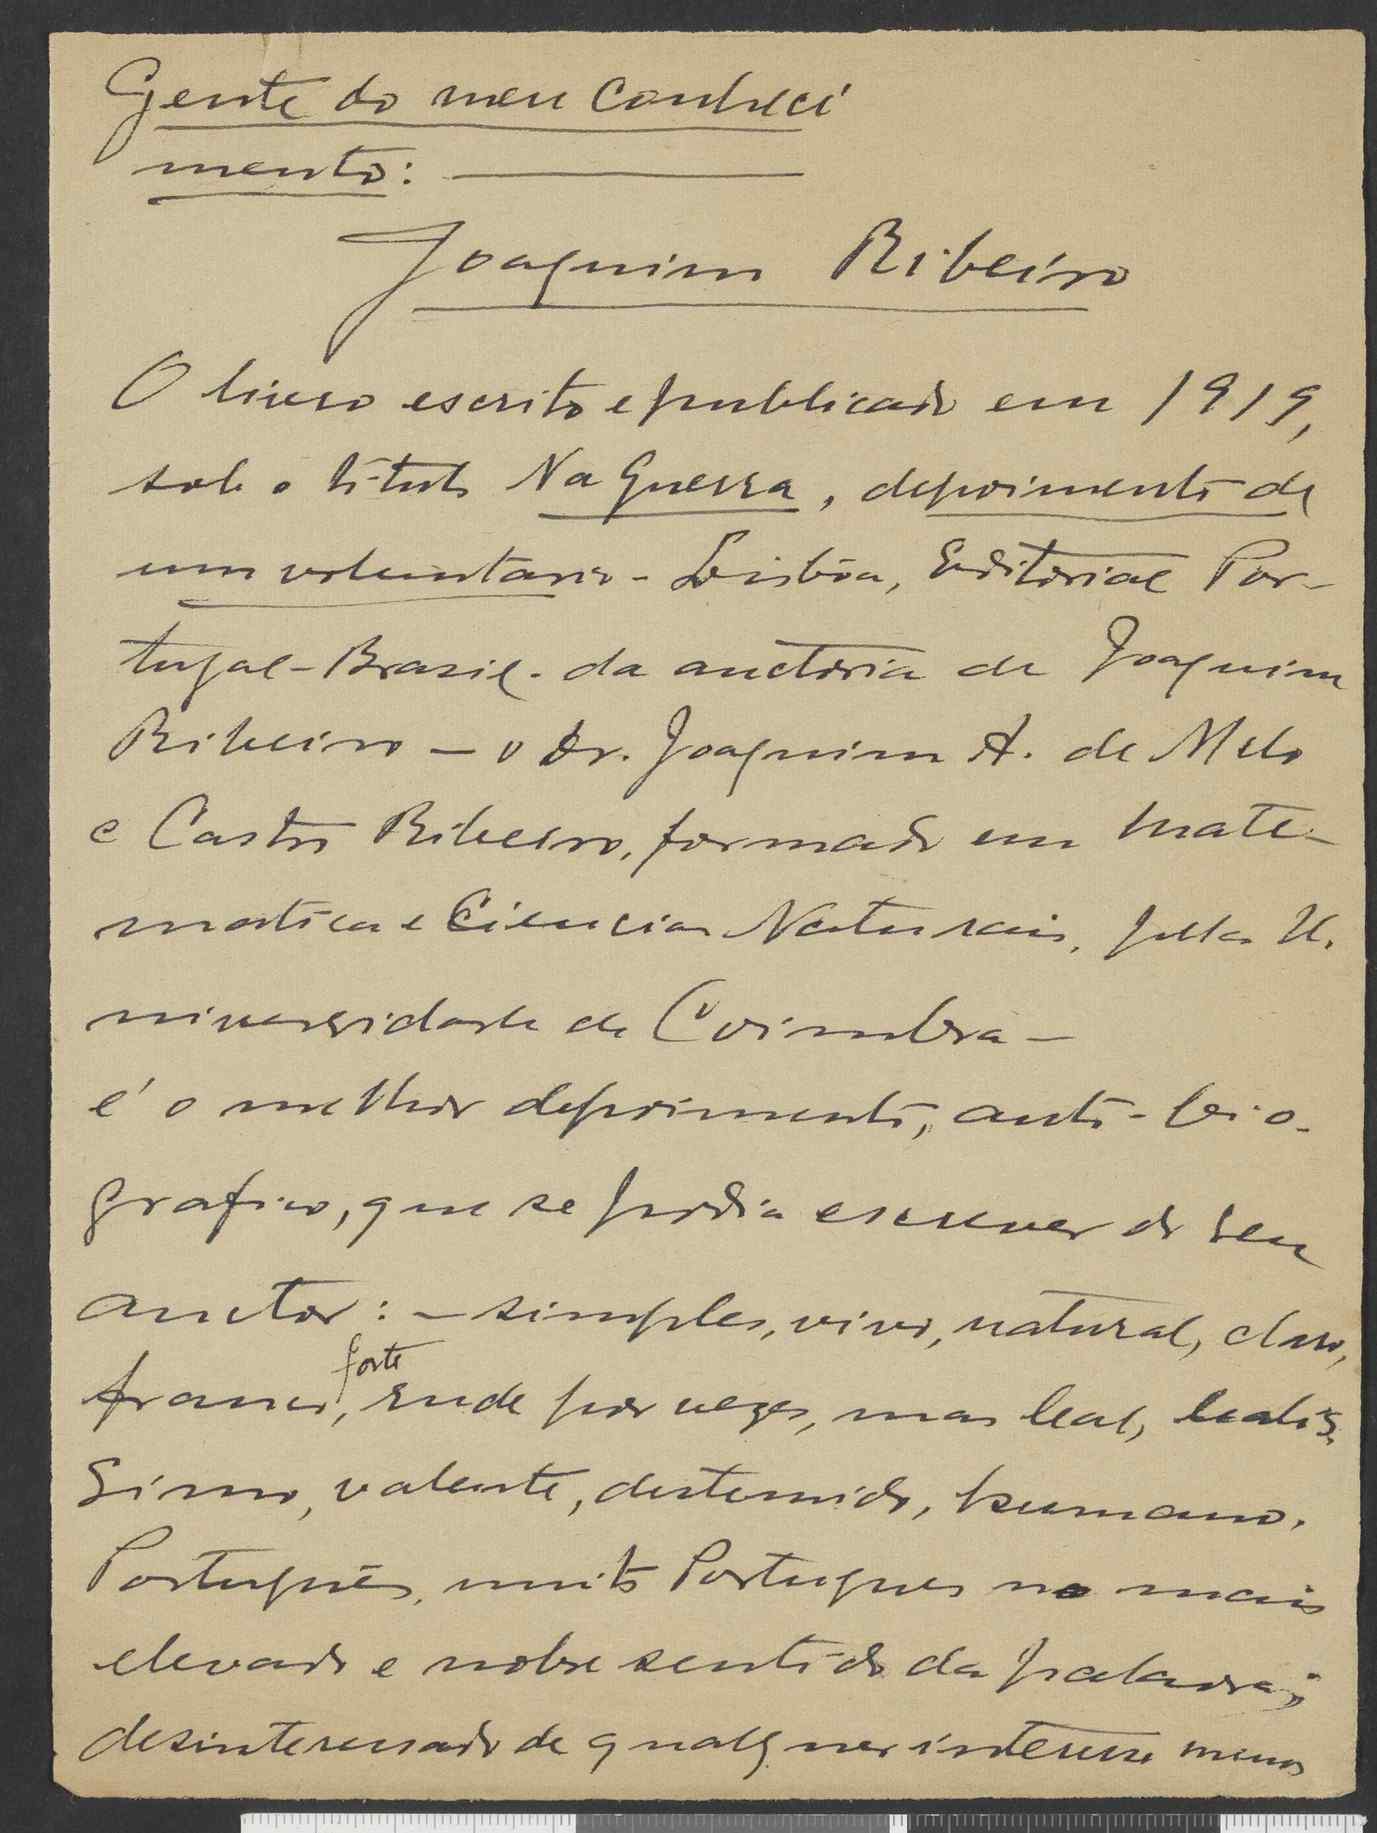 Gente do meu conheci
mento:
Joaquim Ribeiro
O livro escrito e publicado em 1919,
sob o título Na Guerra, depoimento de
um voluntario - Lisbôa, Editorial Por-
tugal-Brasil. da auctoria de Joaquim
Ribeiro - o Dr. Joaquim A. de Melo
e Castro Ribeiro, formado em Mate-
matica e Ciencias Naturais, pela U.
niversidade de Coimbra -
é o melhor depoimento, auto-bio-
grafico, que se podia escrever do seu
auctor: - simples, vivo, natural, claro,
forte
franco, rude por vezes, mas leal, lealis-
simo, valente, destemido, humano.
Português, muito Portugues no mais
elevado e nobre sentido da palavra;
desinteressado de qualquer interesse menos